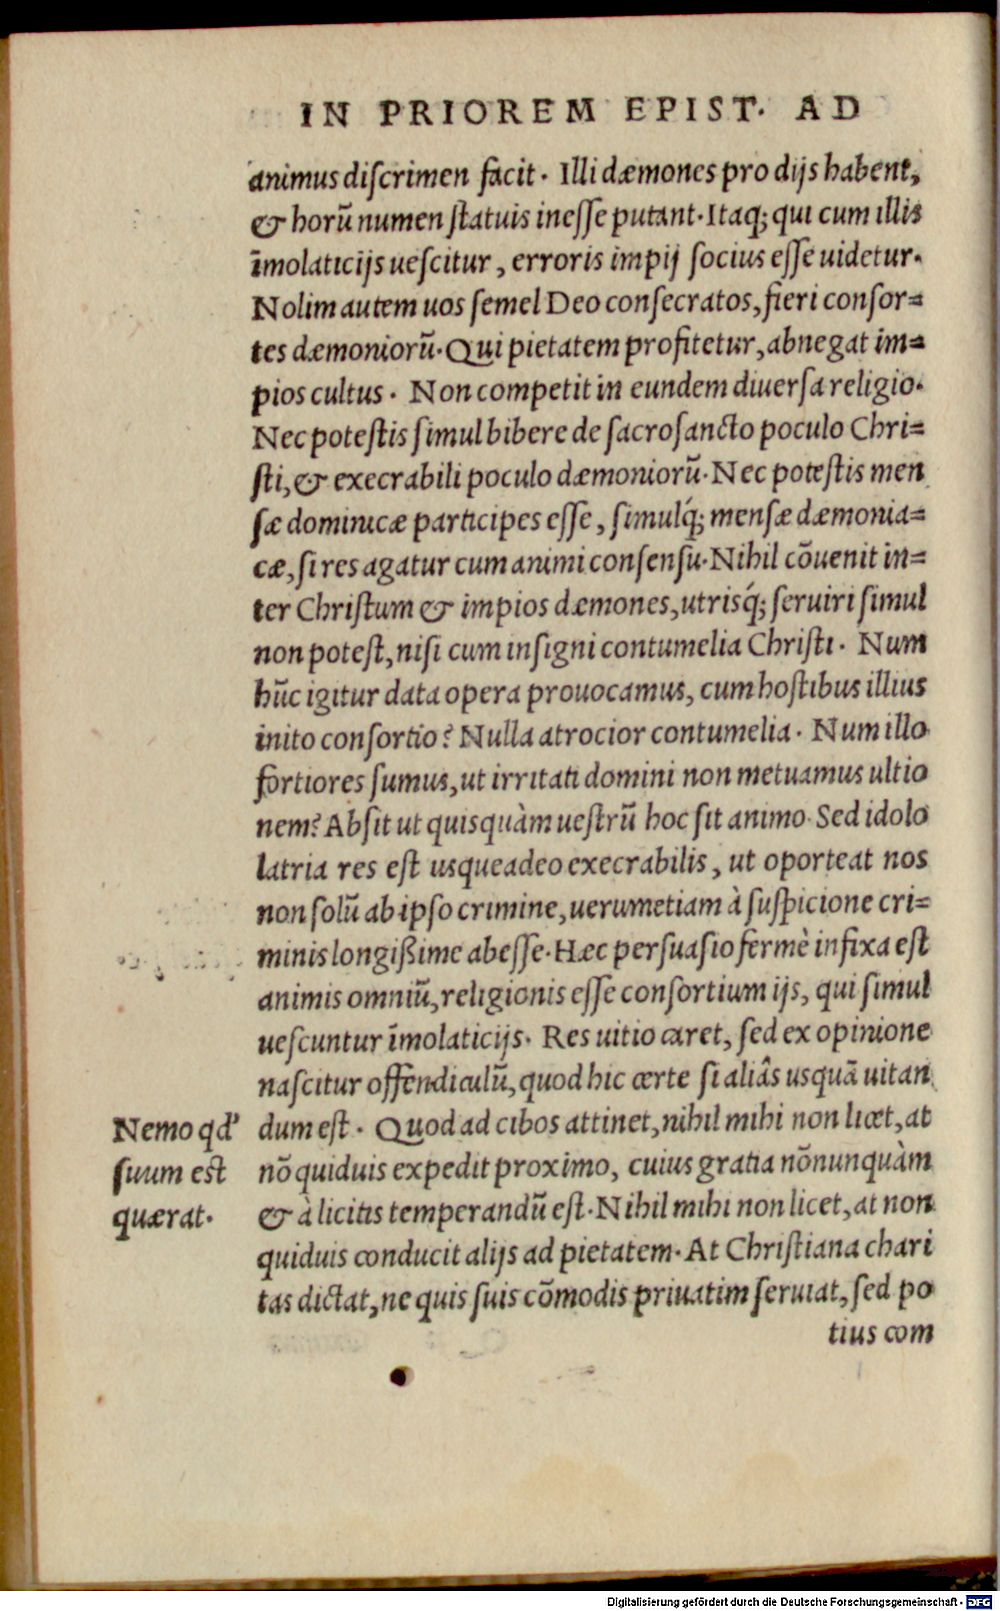 IN PRIOREM EPIST. AD
animus discrimen facit. Illi dæmones pro dijs habent,
& horũ numen statuis inesse putant. Itaq; qui cum illis
ĩmolaticijs uescitur, erroris impij socius esse uidetur.
Nolim autem uos semel Deo consecratos, fieri consor=
tes dæmoniorũ. Qui pietatem profitetur, abnegat im=
pios cultus. Non competit in eundem diuersa religio.
Nec potestis simul bibere de sacrosancto poculo Chri=
sti, & execrabili poculo dæmoniorũ. Nec potestis men
sæ dominicæ participes esse, simulq́; mensæ dæmonia=
cæ, si res agatur cum animi consensu. Nihil cõuenit in=
ter Christum & impios dæmones, utrisq́; seruiri simul
non potest, nisi cum insigni contumelia Christi. Num
hũc igitur data opera prouocamus, cum hostibus illius
inito consortio? Nulla atrocior contumelia. Num illo
fortiores sumus, ut irritati domini non metuamus ultio
nem? Absit ut quisquàm uestrũ hoc sit animo. Sed idolo
latria res est usqueadeo execrabilis, ut oporteat nos
non solũ ab ipso crimine, uerumetiam à suspicione cri=
minis longißime abesse. Hæc persuasio fermè infixa est
animis omniũ, religionis esse consortium ijs, qui simul
uescuntur ĩmolaticijs. Res uitio caret, sed ex opinione
nascitur offendiculũ, quod hic certe si aliâs usquã uitan
dum est. Quod ad cibos attinet, nihil mihi non licet, at
nõ quiduis expedit proximo, cuius gratia nõnunquàm
& à licitis temperandũ est. Nihil mihi non licet, at non
quiduis conducit alijs ad pietatem. At Christiana chari
tas dictat, ne quis suis cõmodis priuatim seruiat, sed po
tius com
Nemo qd'
suum est
quærat.
Digitalisierung gefördert durch die Deutsche Forschungsgemeinschaft - DFG